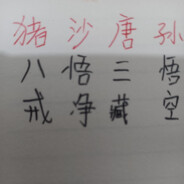 孙悟空
唐三藏
沙悟净
猪八戒